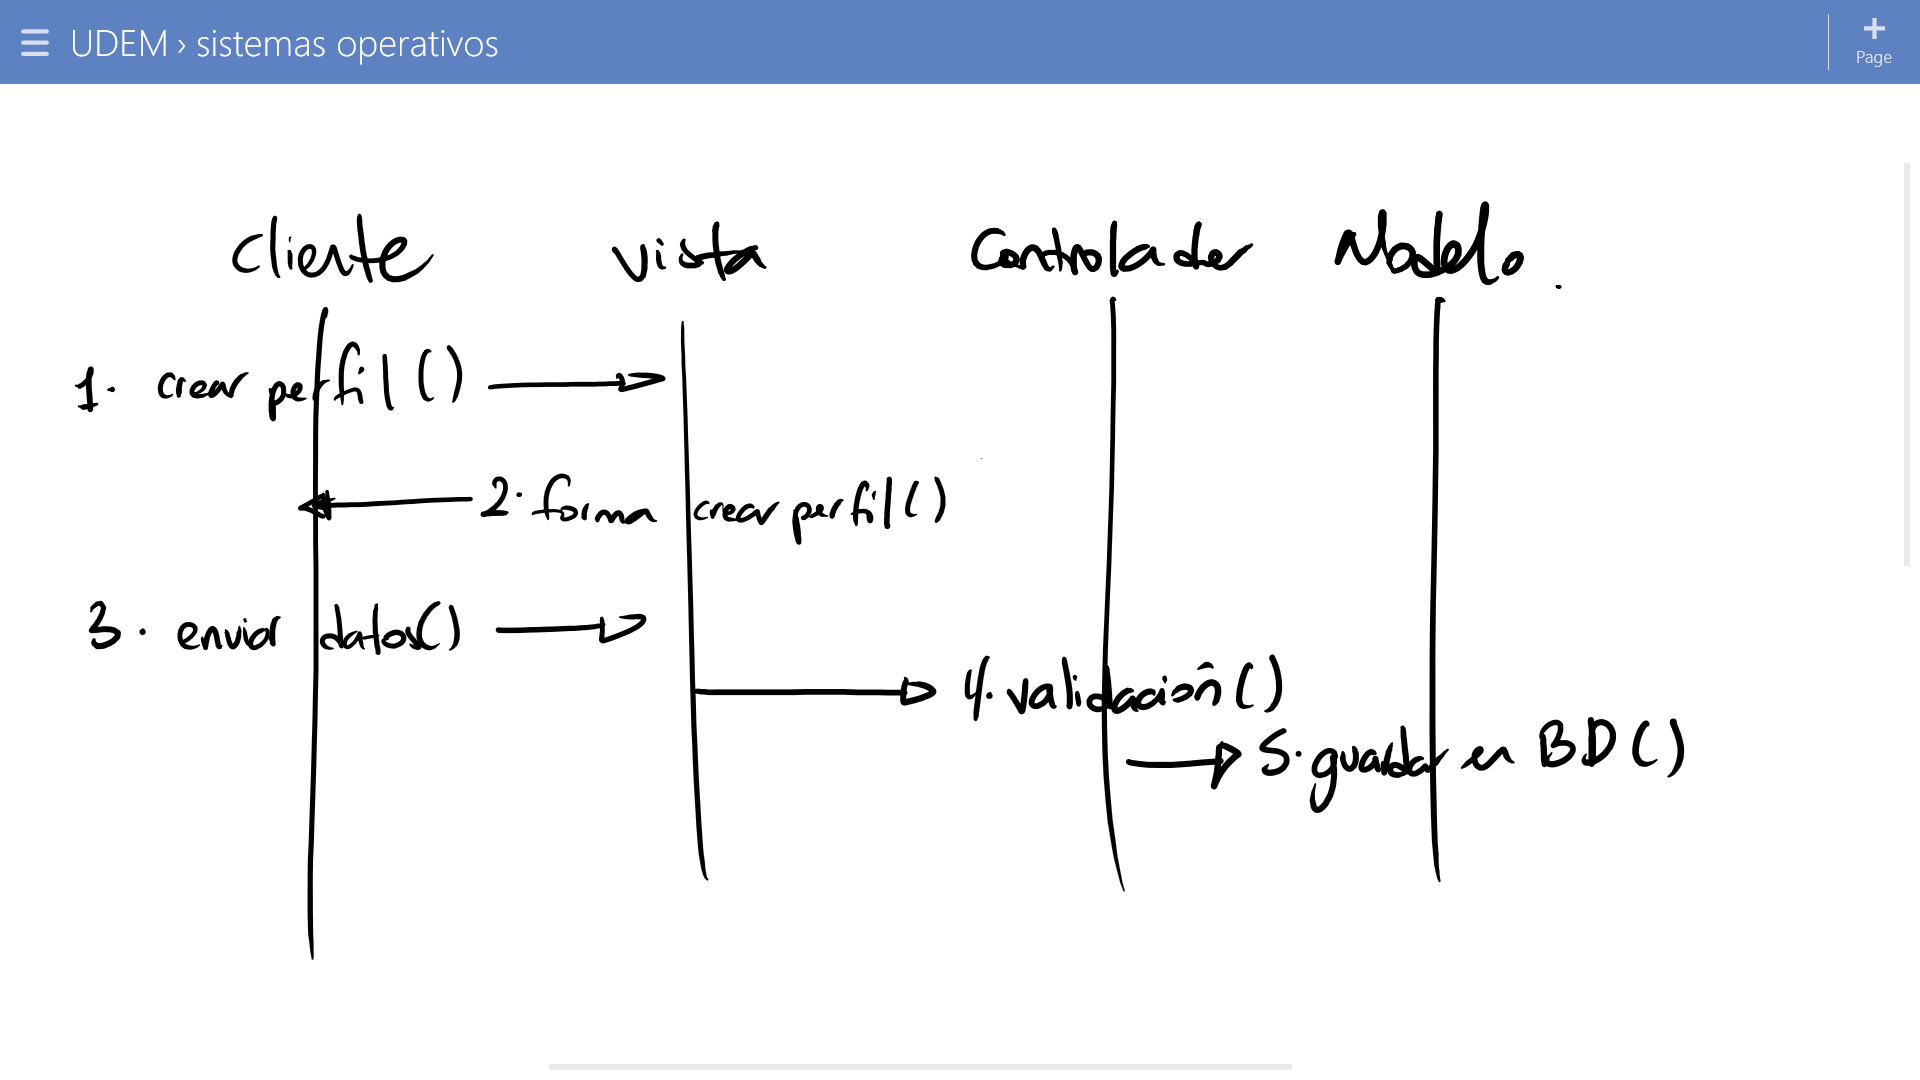 UDEM › sistemas operativos
Page
cliente vista Controlador Modelo.
1. crear perfil()
2. forma crear perfil()
3. enviar datos()
4. validación()
5. guardar en BD()